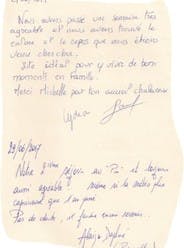 Nous avons passé une semaine très
agréable et nous avons trouvé le
calme et le repos que nous étions
venus chercher.
Site idéal pour y vivre de bons
moments en famille.
Merci Michelle par ton accueil chaleureux
Lydia
29/06/2007
Notre 2ème séjour au "Pi" et toujours
aussi agréable! même si la météo plus
capricieuse que l'an passé.
Pas de doute, il faudra encore revenir.